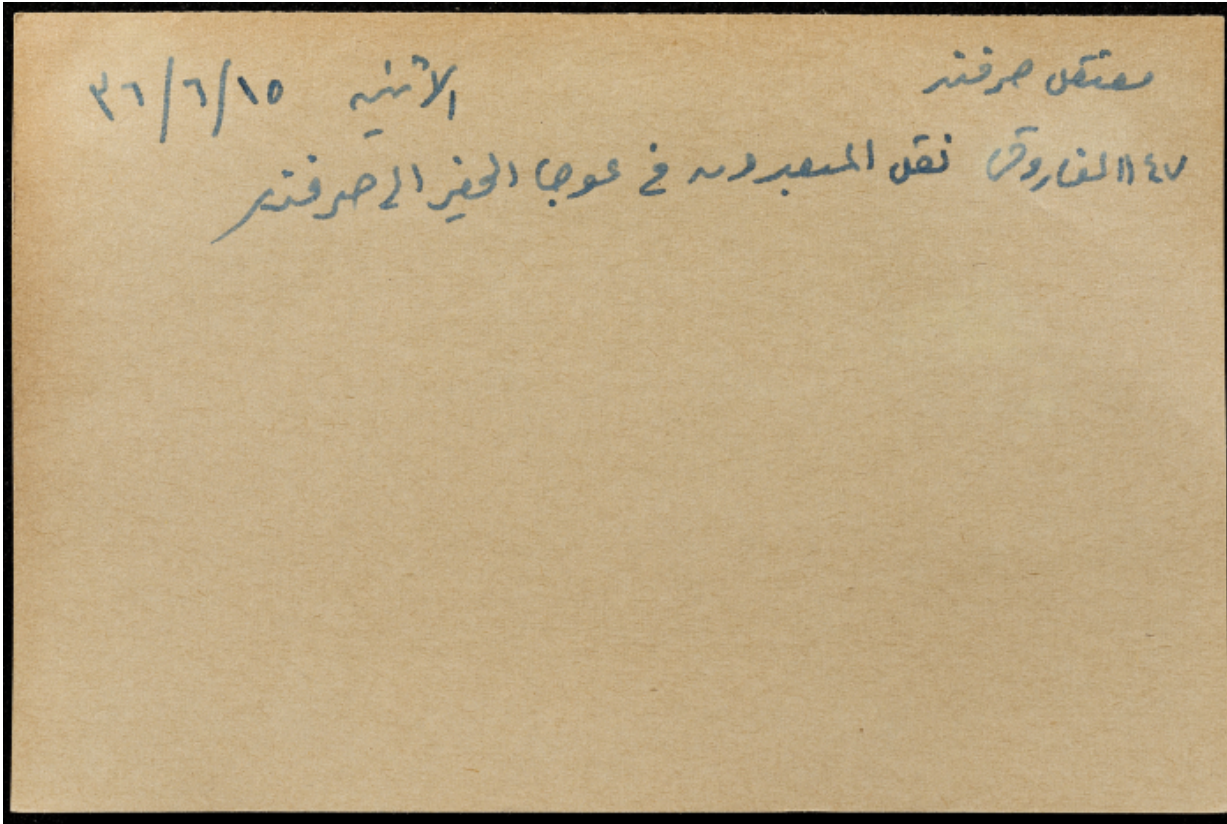 معتقل صرفند الاثنين ٣٦/٦/١٥
نقل المبعدون في عوجا الحفير الى صرفند